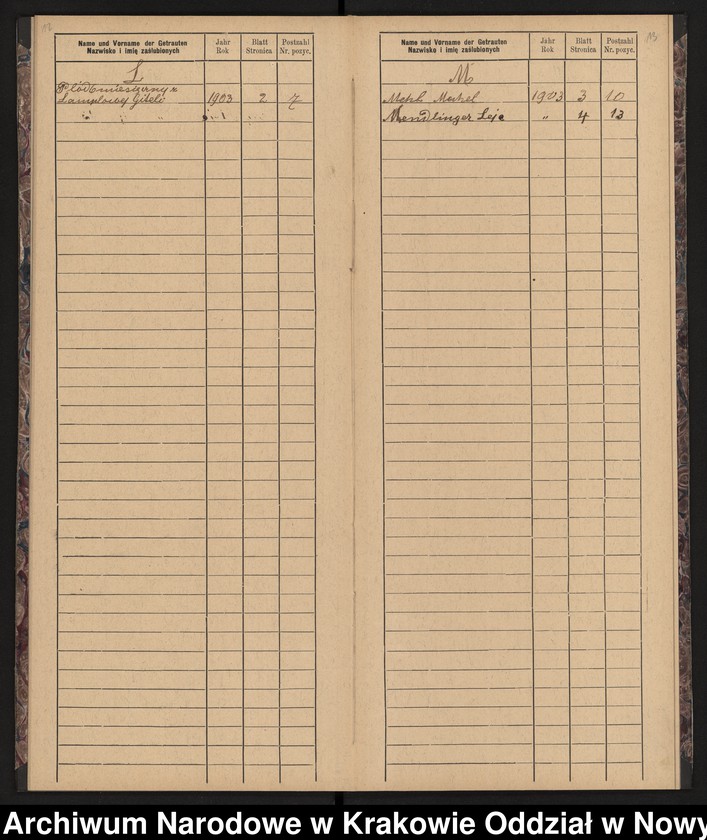 12
Name und Vorname der Getrauten
Nazwisko i imię zaślubionych
Jahr
Rok
Blatt
Stronica
Postzahl
Nr. pozyc.
L
Płód 6 miesięczny z
Lamplowej Giteli 1903 2 7
" " " " "
13
Name und Vorname der Getrauten
Nazwisko i imię zaślubionych
Jahr
Rok
Blatt
Stronica
Postzahl
Nr. pozyc.
M
1903 3 10
Mendlinger Leje " 4 13
Archiwum Narodowe w Krakowie Oddział w Nowy